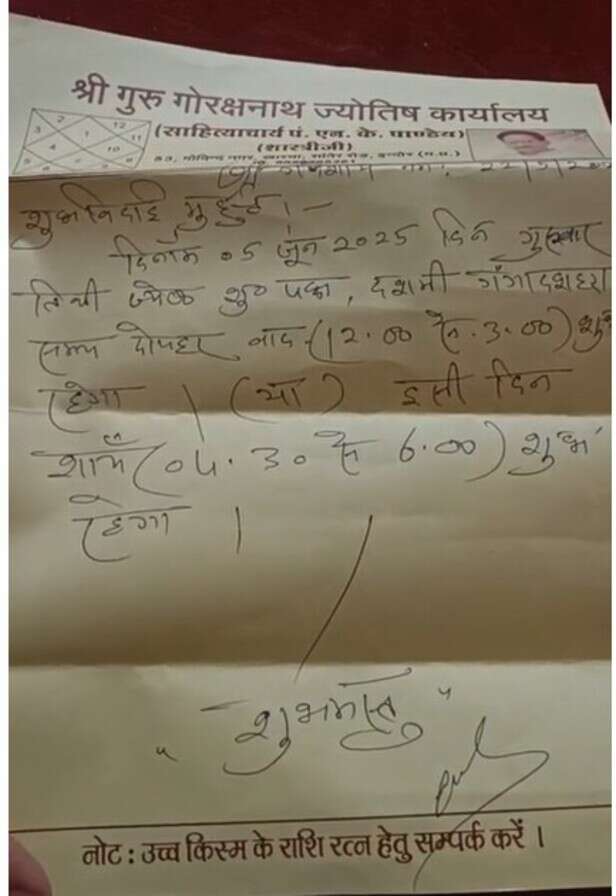 श्री गुरु गोरक्षनाथ ज्योतिष कार्यालय
(साहित्याचार्य पं. एन. के. पाण्डेय)
(शास्त्रीजी)
2
12
3
1
11
4
10
शुभ विदाई मुहुर्त ।-
दिनाँक 05 जून 2025 दिन गुरुवार
तिथी ज्येष्ठ शु० पक्ष, दशमी गँगादशहरा
समय दोपहर बाद (12.00 से 3.00) शुभ
रहेगा । (या) इसी दिन
शाम (04.30 से 6.00) शुभ
रहेगा ।
"शुभमस्तु"
नोट : उच्च किस्म के राशि रत्न हेतु सम्पर्क करें ।